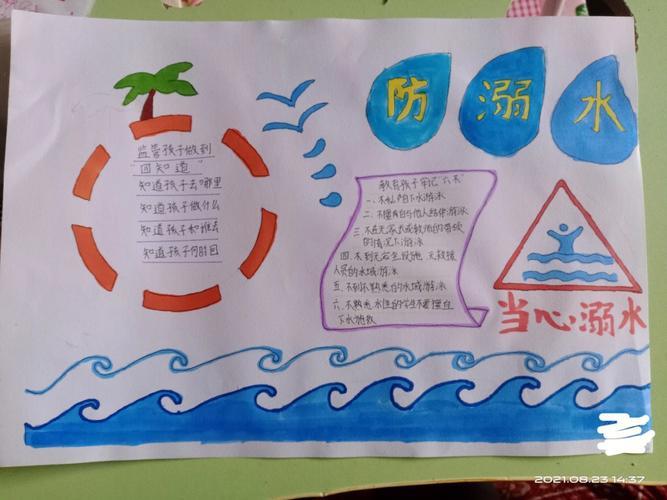 防溺水
监管孩子做到
"四知道"
知道孩子去哪里
知道孩子做什么
知道孩子和谁去
知道孩子何时回
教育孩子牢记"六不"
一、不私自下水游泳
二、不擅自与他人结伴游泳
三、不在无家长或教师的带领
的情况下游泳
四、不到无安全设施、无救援
人员的水域游泳
五、不到不熟悉的水域游泳
六、不熟悉水性的学生不要擅自
下水施救
当心溺水
2021.08.23 14:37